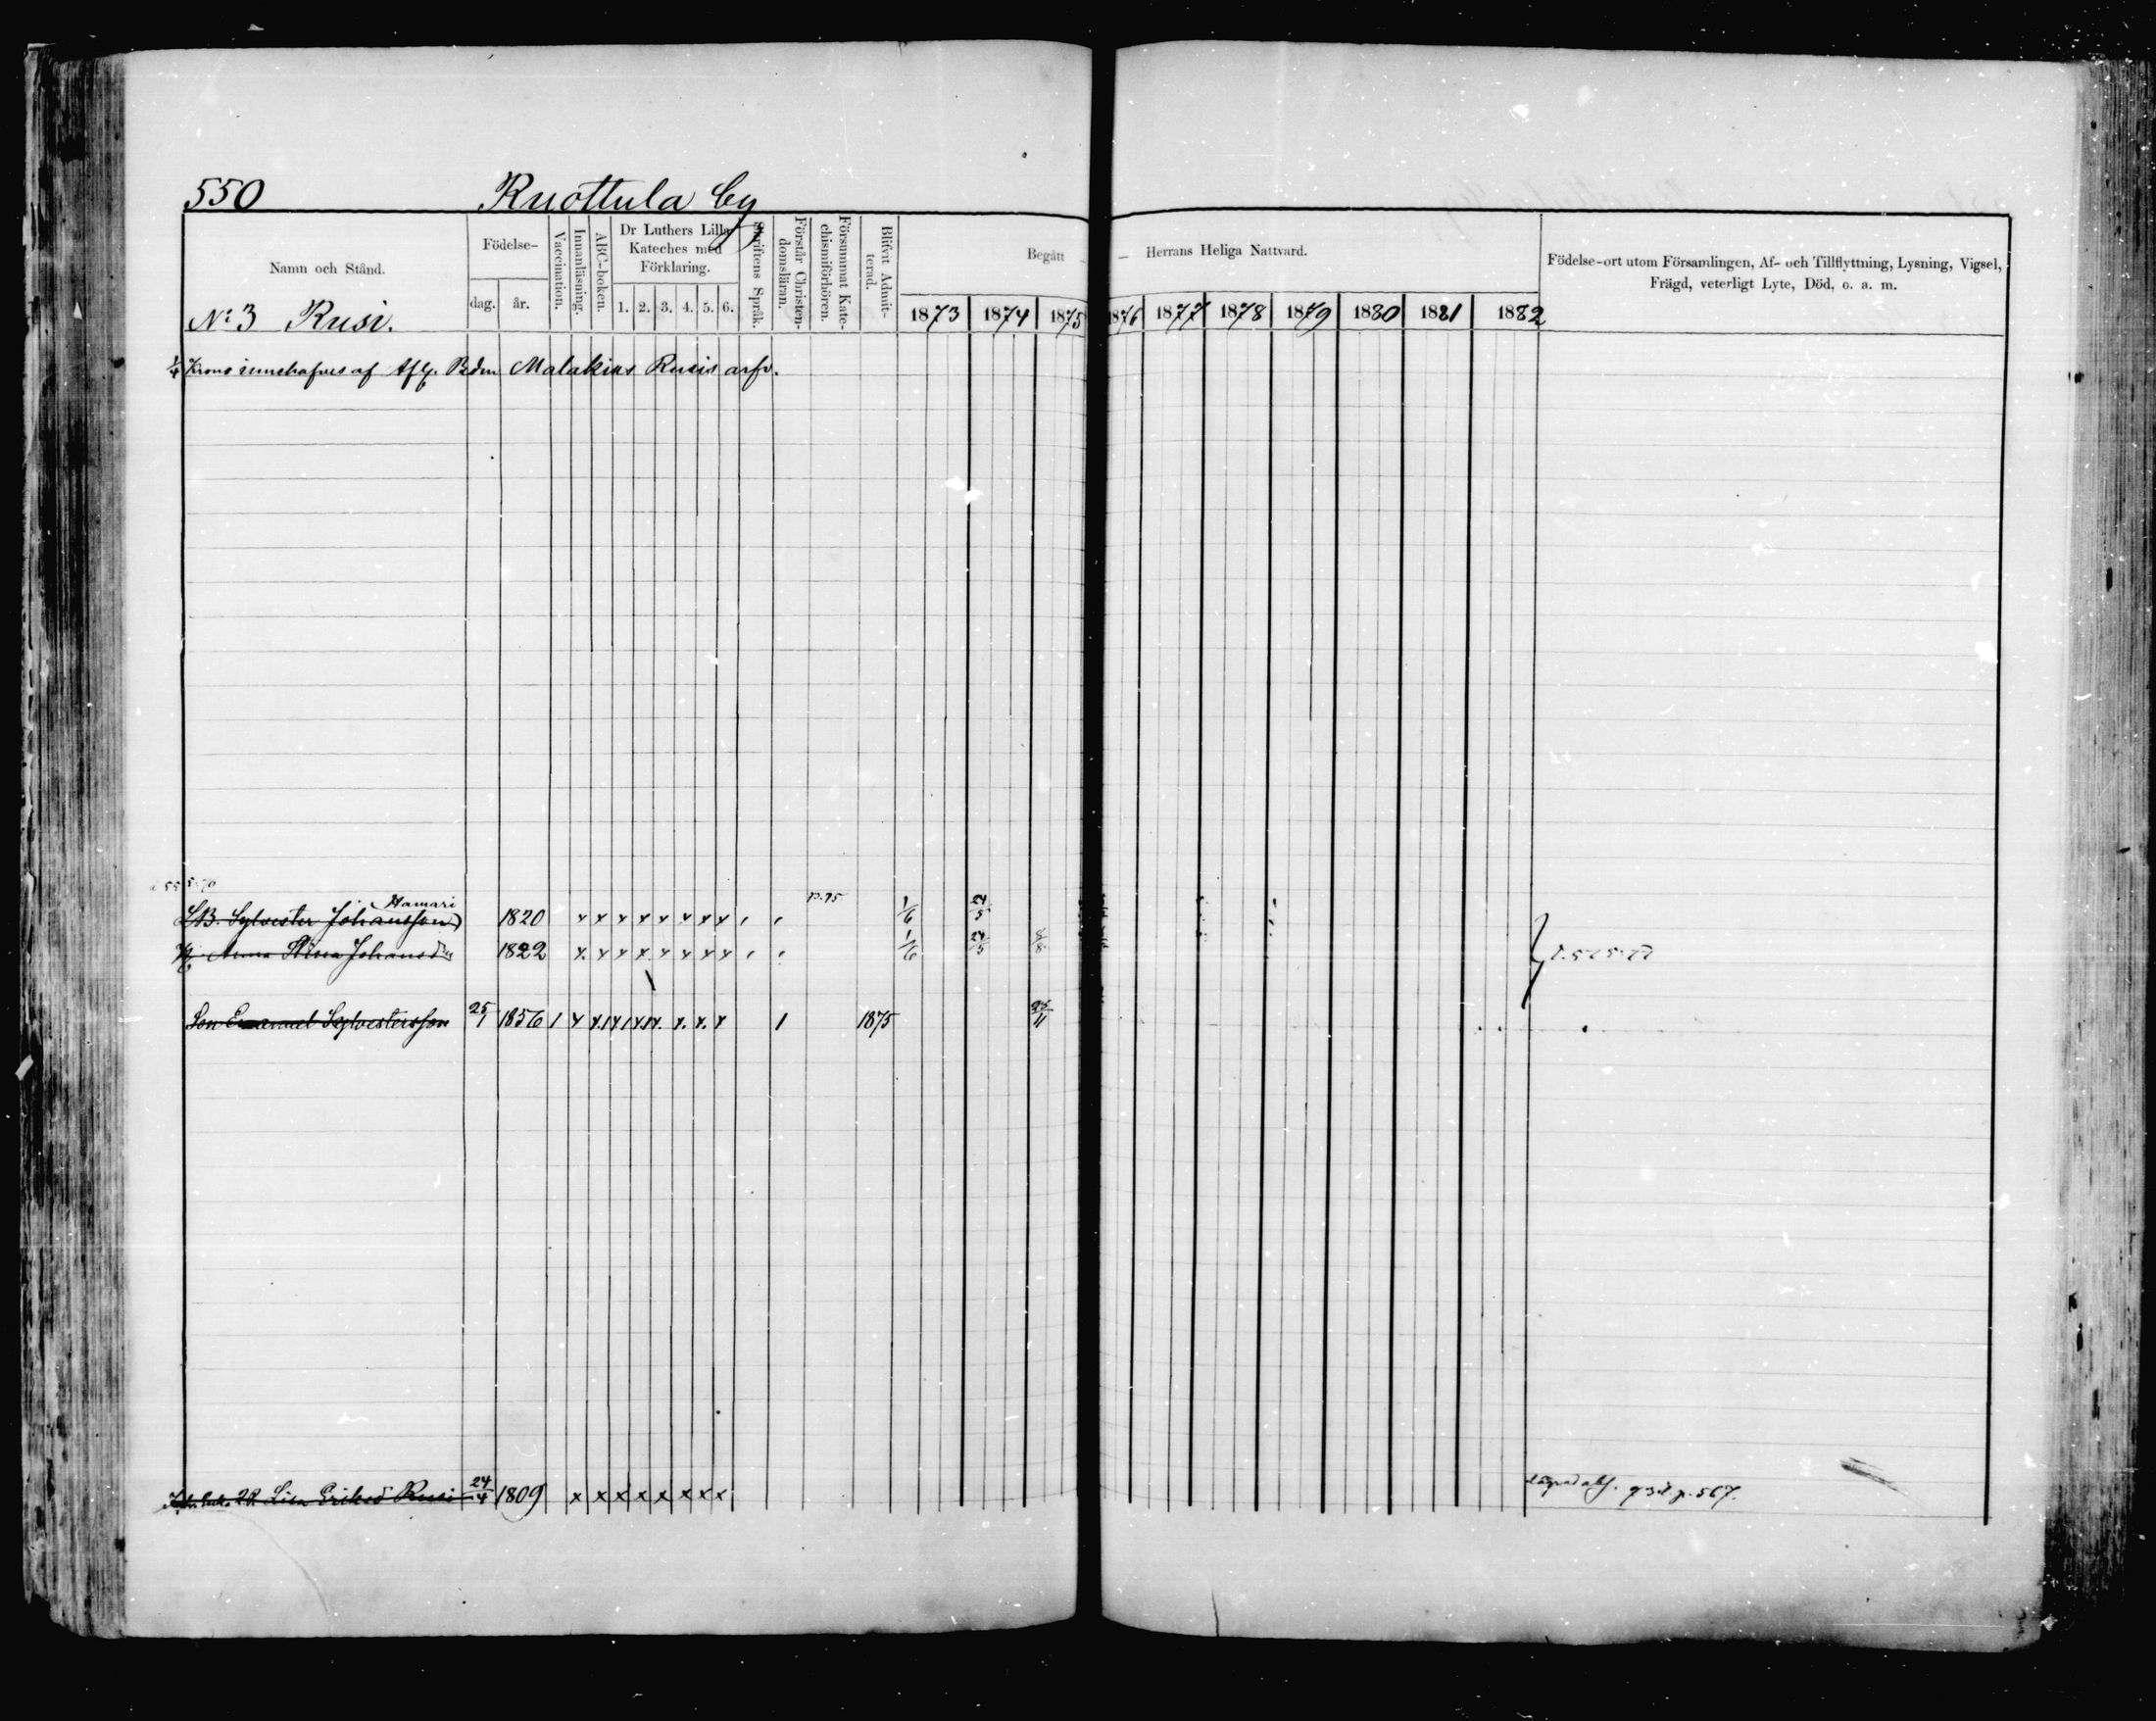 550 Ruottula by
Namn och Stånd.
Födelse-
dag. år.
Vaccination.
Innanläsning.
ABC-boken.
Dr Luthers Lilla Kateches med Förklaring.
1. 2. 3. 4. 5. 6.
Skriftens Språk.
Förstår Christendomsläran.
Försummat Katechismiförhören.
Blifvit Admitterad.
Begått — Herrans Heliga Nattvard.
1873 1874 1875 1876 1877 1878 1879 1880 1881 1882
Födelse-ort utom Församlingen, Af- och Tillflyttning, Lysning, Vigsel,
Frägd, veterligt Lyte, Död, o. a. m.
No 3 Rusi.
1/4 Krono innehafves af Afl. Bdn Malakias Rusis arfv.
Hamari
Sylvester Johansson 1820 x x x x x x x x 1/6 24/5
Anna Stina Johansd:r 1822 x x x x x x x x 1/6 24/5 8/8
Son Emanuel Sylvestersson 25/1 1856 1 1 1875 25/11
Lisa Eriksd Rusi 24/4 1809 x x x x x x x x p. 567.